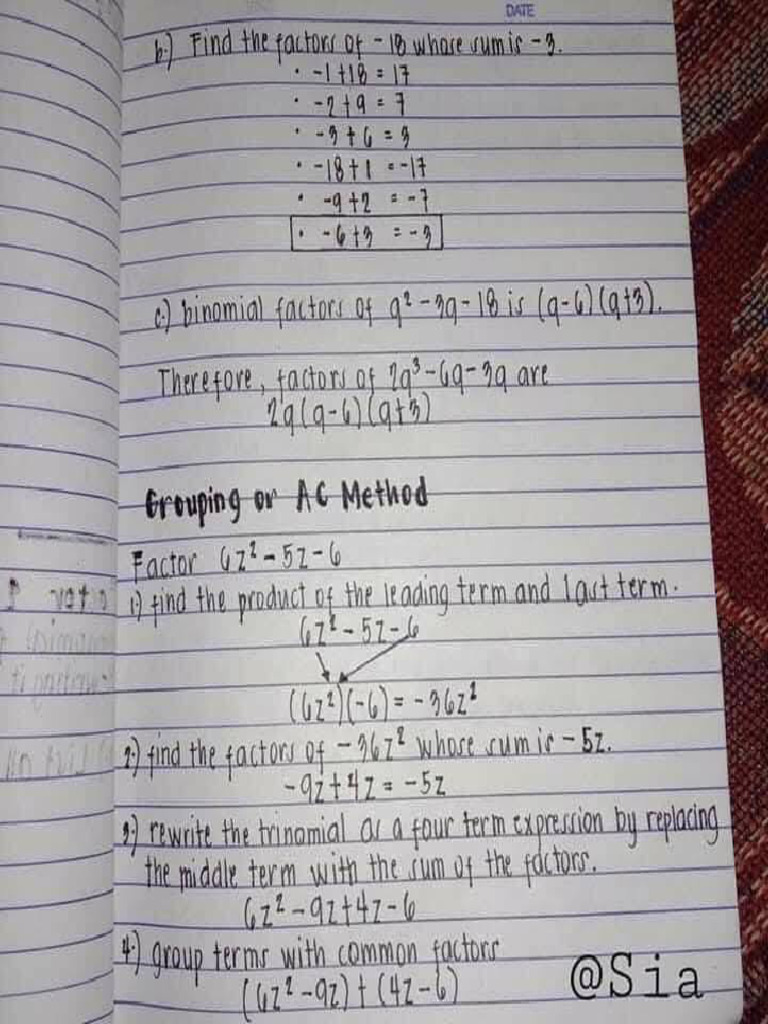 DATE
b.) Find the factors of -18 whose sum is -3.
• -1+18 = 17
• -2+9 = 7
• -3+6 = 3
• -18+1 = -17
• -9+2 = -7
• -6+3 = -3
c.) binomial factors of q² - 3q - 18 is (q-6)(q+3).
Therefore, factors of 2q³ - 6q - 3q are
2q(q-6)(q+3)
Grouping or AC Method
Factor 6z² - 5z - 6
1.) find the product of the leading term and last term.
6z² - 5z - 6
(6z²)(-6) = -36z²
2.) find the factors of -36z² whose sum is -5z.
-9z+4z = -5z
3.) rewrite the trinomial as a four term expression by replacing
the middle term with the sum of the factors.
6z² - 9z + 4z - 6
4.) group terms with common factors
(6z² - 9z) + (4z - 6)
@Sia